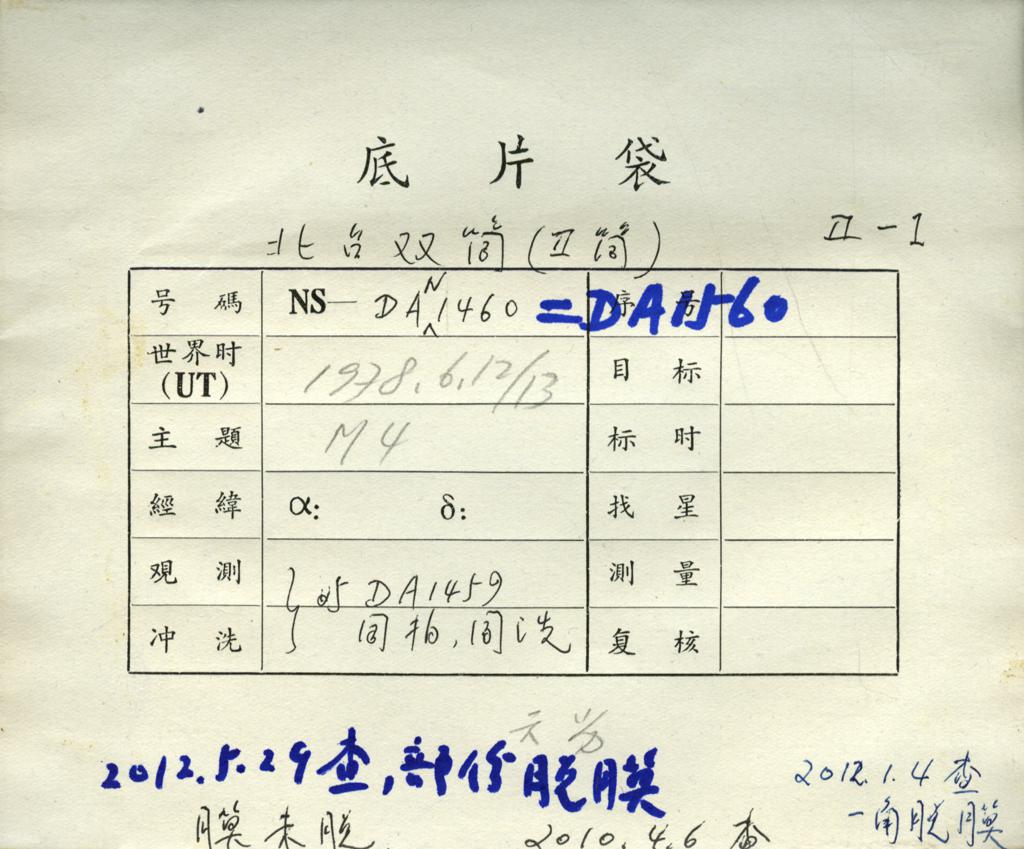 底片袋
北台双筒(II筒) II-1
号碼 NS— DA N 1460 =DA1560 序号
世界时(UT) 1978.6.12/13 目标
主題 M4 标时
經緯 α: δ: 找星
观測 与DA1459 測量
冲洗 同拍,同洗 复核
2012.5.29查,部份脱膜
2012.1.4查
一角脱膜
膜未脱 2010.4.6查